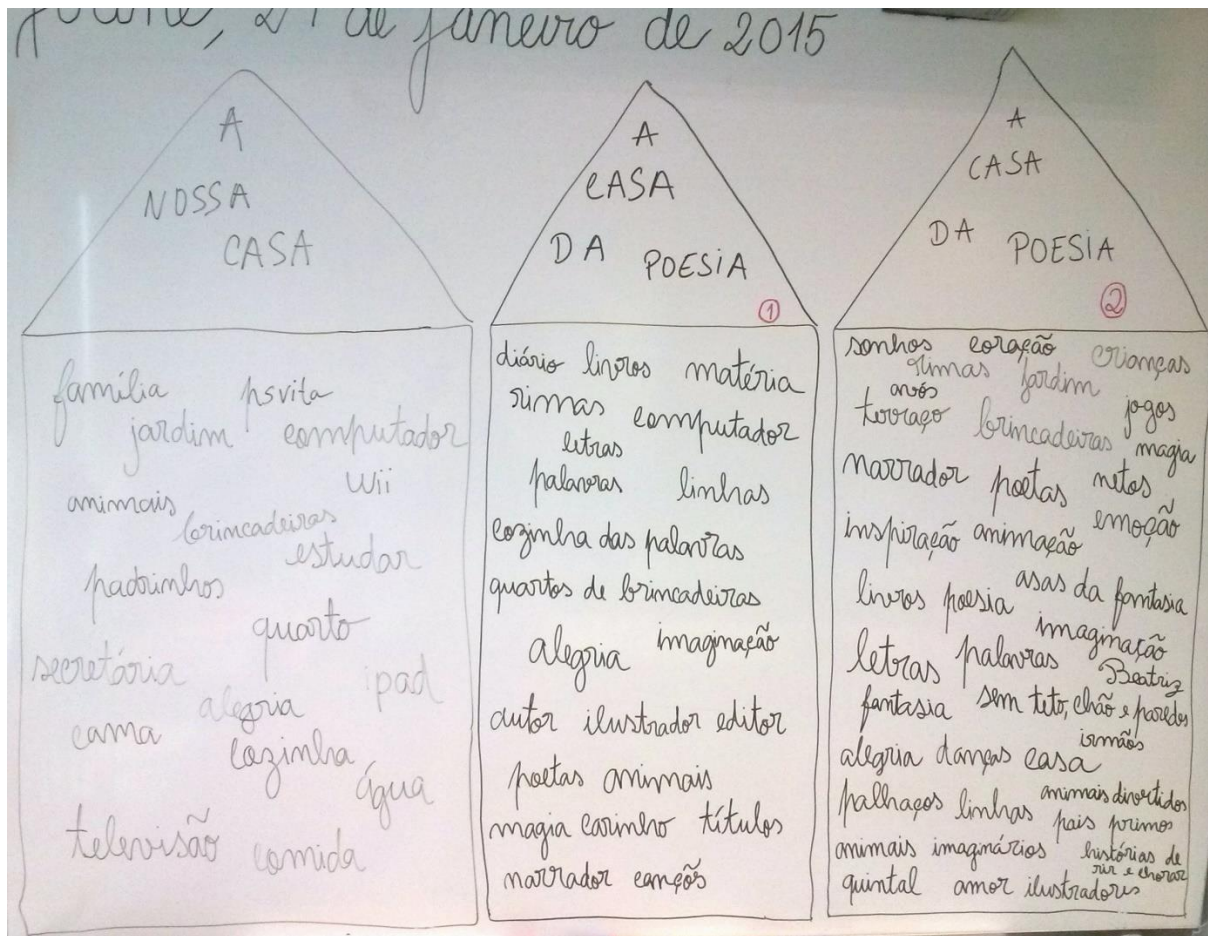 Joane, 21 de janeiro de 2015
A
NOSSA
CASA
família psvita
jardim computador
wii
animais
brincadeiras
estudar
padrinhos
quarto
secretária
ipad
alegria
cama
cozinha
água
televisão
comida
A
CASA
DA POESIA
①
diário livros matéria
rimas computador
letras
palavras linhas
cozinha das palavras
quartos de brincadeiras
alegria imaginação
autor ilustrador editor
poetas animais
magia carinho títulos
narrador canções
A
CASA
DA POESIA
②
sonhos coração crianças
rimas jardim
avós
terraço brincadeiras jogos
magia
narrador poetas netos
emoção
inspiração animação
asas da fantasia
livros poesia
imaginação
letras palavras
Beatriz
fantasia sem teto, chão e paredes
irmãos
alegria danças casa
palhaços linhas animais divertidos
pais primos
animais imaginários histórias de
rir e chorar
quintal amor ilustradores